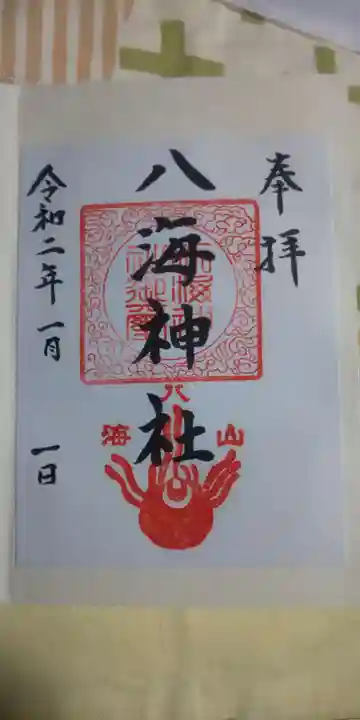 奉拝
八海神社
令和二年一月一日
八
海山